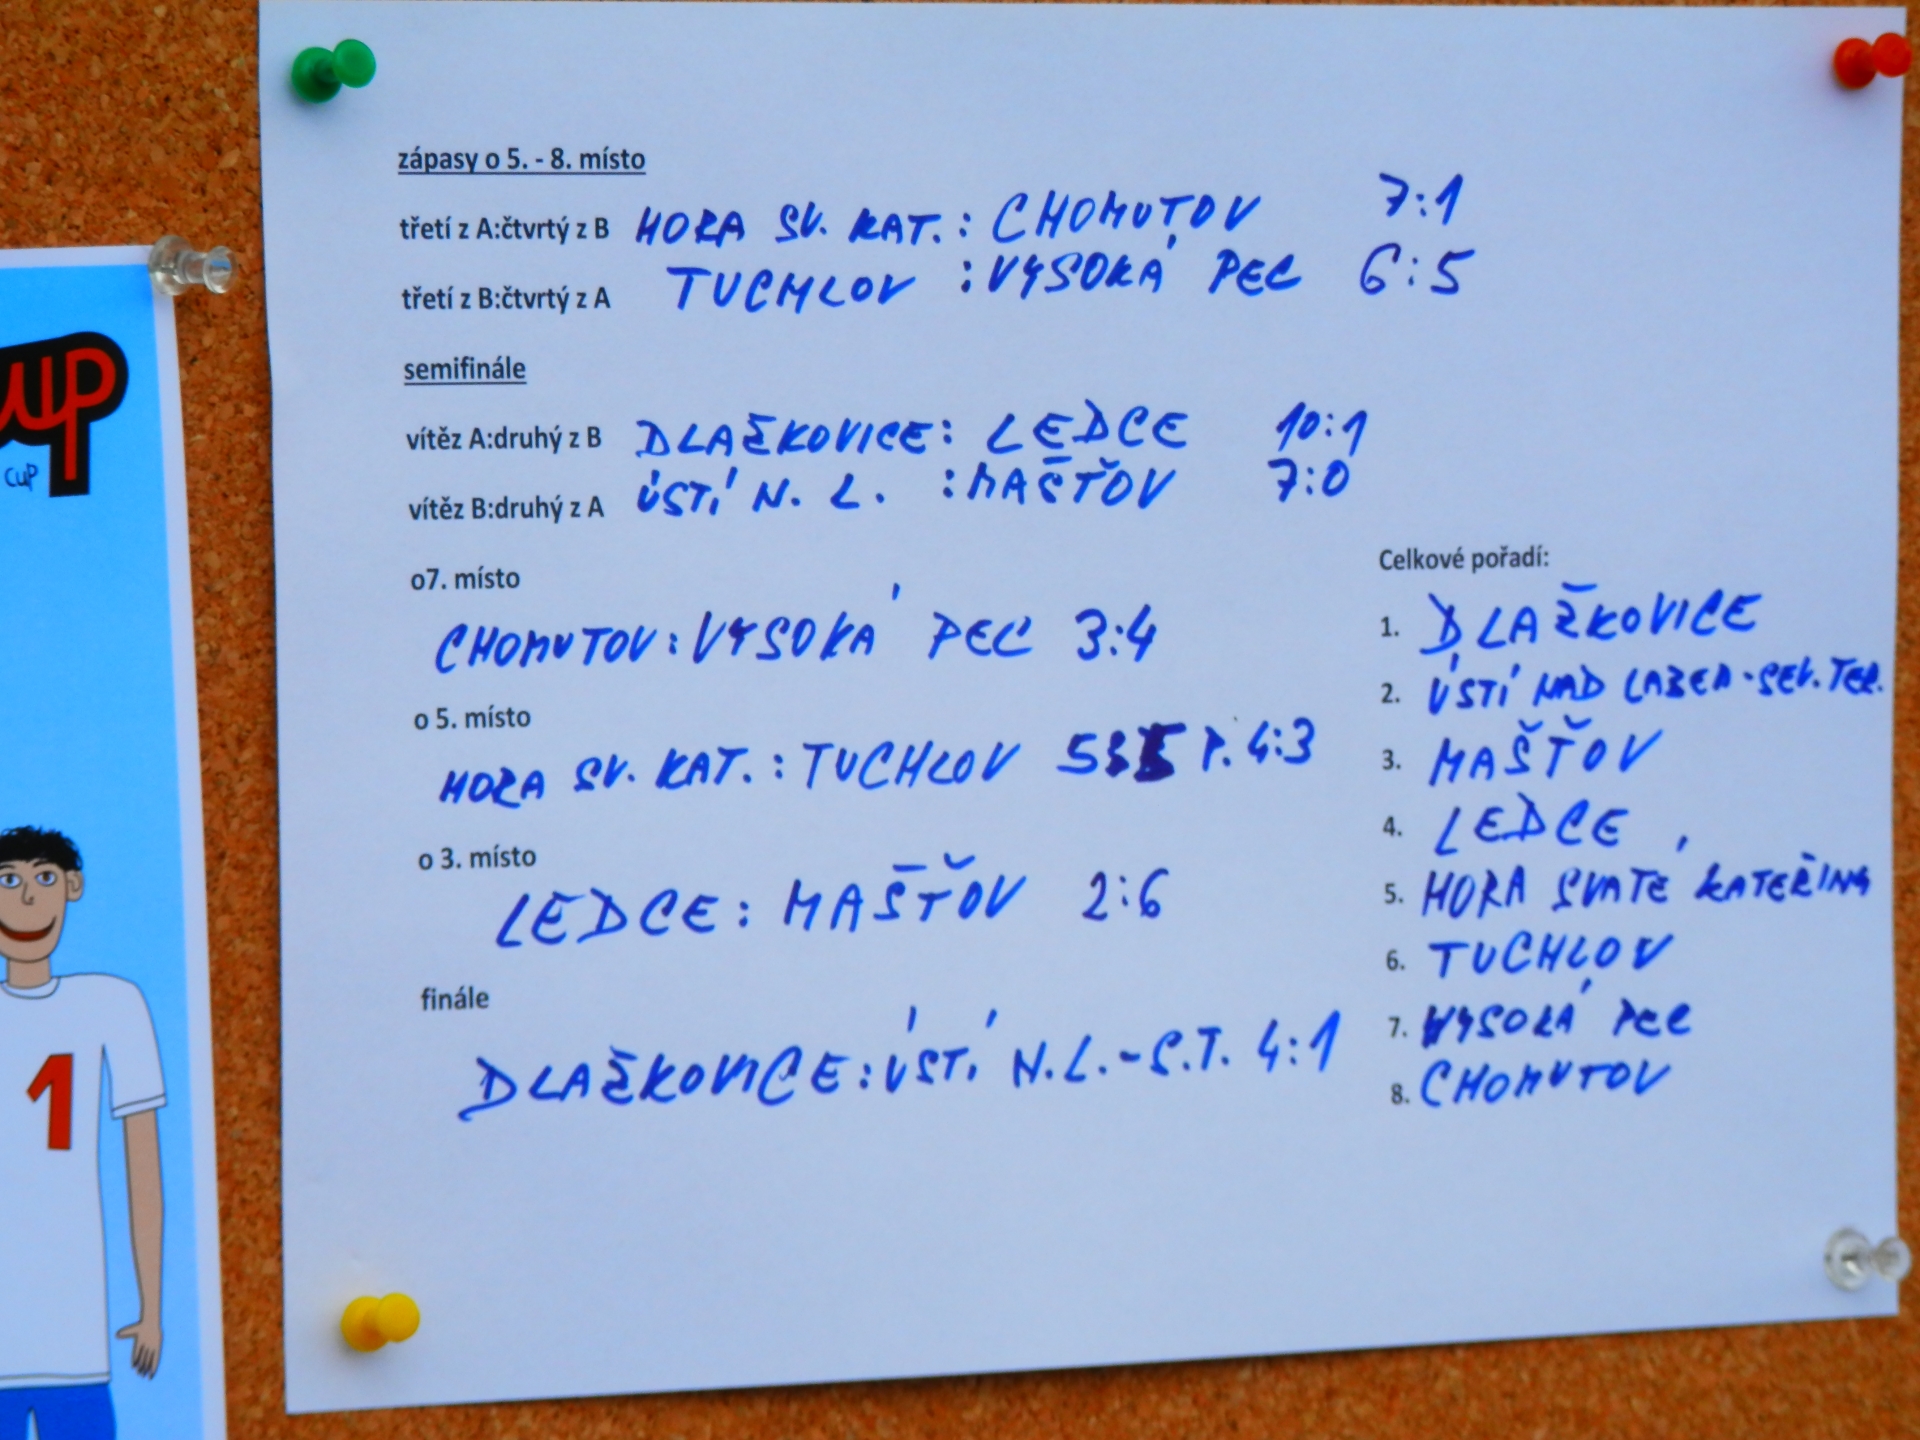 up
cup
1
zápasy o 5. - 8. místo
třetí z A:čtvrtý z B HORA SV. KAT. : CHOMUTOV 7:1
třetí z B:čtvrtý z A TUCHLOV : VYSOKÁ PEC 6:5
semifinále
vítěz A:druhý z B DLAŽKOVICE : LEDCE 10:1
vítěz B:druhý z A ÚSTÍ N. L. : MAŠŤOV 7:0
o7. místo
CHOMUTOV : VYSOKÁ PEC 3:4
o 5. místo
HORA SV. KAT. : TUCHLOV P. 4:3
o 3. místo
LEDCE : MAŠŤOV 2:6
finále
DLAŽKOVICE : ÚSTÍ N.L.-S.T. 4:1
Celkové pořadí:
1. DLAŽKOVICE
2. ÚSTÍ NAD LABEM - SEV. TER.
3. MAŠŤOV
4. LEDCE
5. HORA SVATÉ KATEŘINY
6. TUCHLOV
7. VYSOKÁ PEC
8. CHOMUTOV